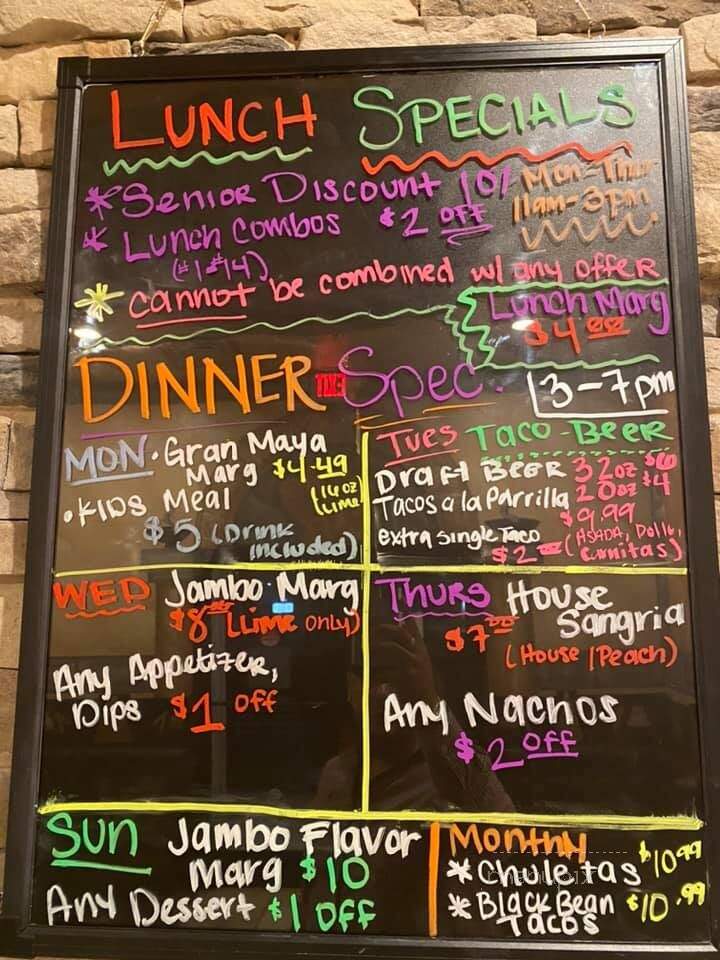 LUNCH SPECIALS
*Senior Discount 10% Mon-Thur
* Lunch Combos $2 off 11am-3pm
(#1-#14)
* cannot be combined w/ any offer
Lunch Marg
$4.00
DINNER Spec. 3-7pm
MON. Gran Maya
Marg $4.49
(16oz
Lime)
• KIDS Meal
$5 (Drink
included)
Tues Taco-Beer
Draft Beer 32oz $6
20oz $4
Tacos a la Parrilla
$9.99
extra single Taco
$2.00 (ASADA, Pollo,
Carnitas)
WED Jambo Marg
$8.00 (Lime only)
Any Appetizer,
Dips $1 off
Thurs House
Sangria
$7.00
(House / Peach)
Any Nachos
$2 off
Sun Jambo Flavor
Marg $10
Any Dessert $1 OFF
Monthy
* Chuletas $10.99
* Black Bean $10.99
Tacos